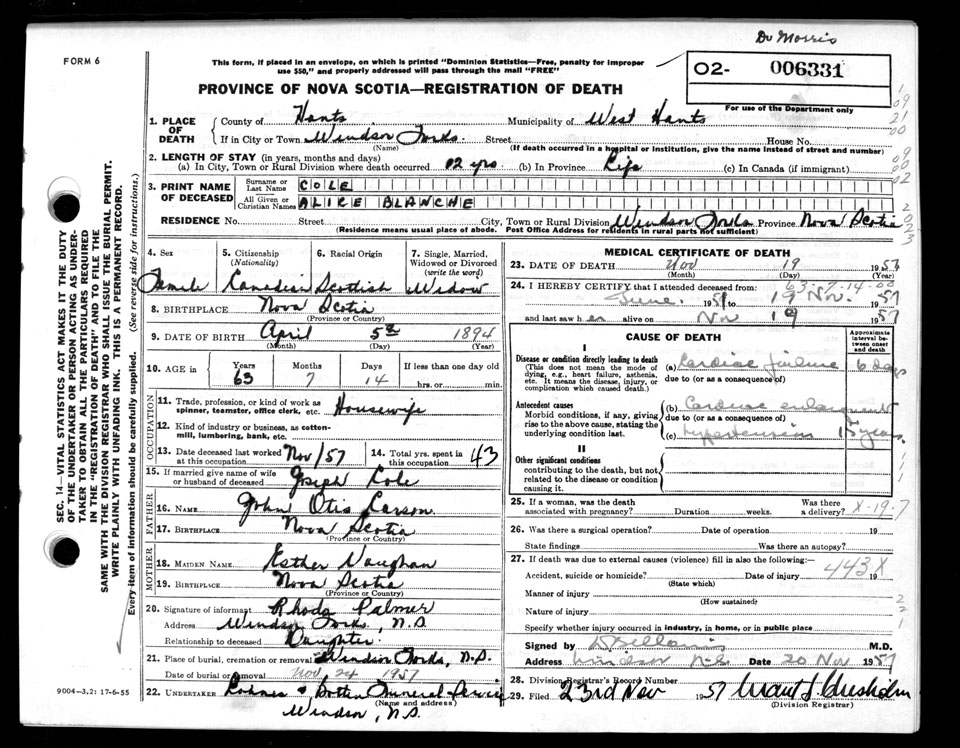 Dr Morris
FORM 6
This form, if placed in an envelope, on which is printed "Dominion Statistics—Free, penalty for improper
use $50," and properly addressed will pass through the mail "FREE"
O2- 006331
PROVINCE OF NOVA SCOTIA—REGISTRATION OF DEATH
For use of the Department only
1. PLACE OF DEATH
County of Hants Municipality of West Hants
If in City or Town Windsor Forks Street House No.
(Name) (If death occurred in a hospital or institution, give the name instead of street and number)
2. LENGTH OF STAY (in years, months and days)
(a) In City, Town or Rural Division where death occurred (b) In Province Life (c) In Canada (if immigrant)
3. PRINT NAME OF DECEASED
Surname or Last Name COLE
All Given or Christian Names ALICE BLANCHE
RESIDENCE No. Street City, Town or Rural Division Windsor Forks Province Nova Scotia
(Residence means usual place of abode. Post Office Address for residents in rural parts not sufficient)
SEC. 14—VITAL STATISTICS ACT MAKES IT THE DUTY
OF THE UNDERTAKER OR PERSON ACTING AS UNDER-
TAKER TO OBTAIN ALL THE PARTICULARS REQUIRED
IN THE "REGISTRATION OF DEATH" AND TO FILE THE
SAME WITH THE DIVISION REGISTRAR WHO SHALL ISSUE THE BURIAL PERMIT.
WRITE PLAINLY WITH UNFADING INK. THIS IS A PERMANENT RECORD.
Every item of information should be carefully supplied. (See reverse side for instructions.)
4. Sex 5. Citizenship (Nationality) 6. Racial Origin 7. Single, Married, Widowed or Divorced (write the word)
Female Canadian Scottish Widow
8. BIRTHPLACE Nova Scotia
(Province or Country)
9. DATE OF BIRTH April 5th 1894
(Month) (Day) (Year)
10. AGE in Years Months Days If less than one day old
63 7 14 hrs. or min.
OCCUPATION
11. Trade, profession, or kind of work as
spinner, teamster, office clerk, etc. Housewife
12. Kind of industry or business, as cotton-
mill, lumbering, bank, etc.
13. Date deceased last worked at this occupation Nov/57 14. Total yrs. spent in this occupation 43
15. If married give name of wife
or husband of deceased Joseph Cole
FATHER
16. NAME John Otis Larson
17. BIRTHPLACE Nova Scotia
(Province or Country)
MOTHER
18. MAIDEN NAME Esther Vaughan
19. BIRTHPLACE Nova Scotia
(Province or Country)
20. Signature of informant Rhoda Palmer
Address Windsor Forks, N.S.
Relationship to deceased Daughter
21. Place of burial, cremation or removal Windsor Forks, N.S.
Date of burial or removal Nov 24 1957
22. UNDERTAKER Funeral Service
(Name and address)
Windsor, N.S.
9004-3.2: 17-6-55
MEDICAL CERTIFICATE OF DEATH
23. DATE OF DEATH Nov 19 1957
(Month) (Day) (Year)
63-7-14-00
24. I HEREBY CERTIFY that I attended deceased from:
June 1951 to 19 Nov. 1957
and last saw her alive on Nov 19 1957
CAUSE OF DEATH
Approximate interval between onset and death
I
Disease or condition directly leading to death
(This does not mean the mode of dying, e.g., heart failure, asthenia, etc. It means the disease, injury, or complication which caused death.)
(a) Cardiac failure 6 days
due to (or as a consequence of)
Antecedent causes
Morbid conditions, if any, giving rise to the above cause, stating the underlying condition last.
(b) Cardiac enlargement
due to (or as a consequence of)
(c) Hypertension 15 years
II
Other significant conditions
contributing to the death, but not related to the disease or condition causing it.
25. If a woman, was the death associated with pregnancy? Duration weeks. Was there a delivery? X-19-7
26. Was there a surgical operation? Date of operation 19
State findings Was there an autopsy?
27. If death was due to external causes (violence) fill in also the following:— 443X
Accident, suicide or homicide? Date of injury 19
(State which)
Manner of injury
(How sustained)
Nature of injury
Specify whether injury occurred in industry, in home, or in public place
Signed by M.D.
Address Windsor N.S. Date 20 Nov 1957
28. Division Registrar's Record Number
29. Filed 23rd Nov 1957 Grant J. Chisholm
(Division Registrar)